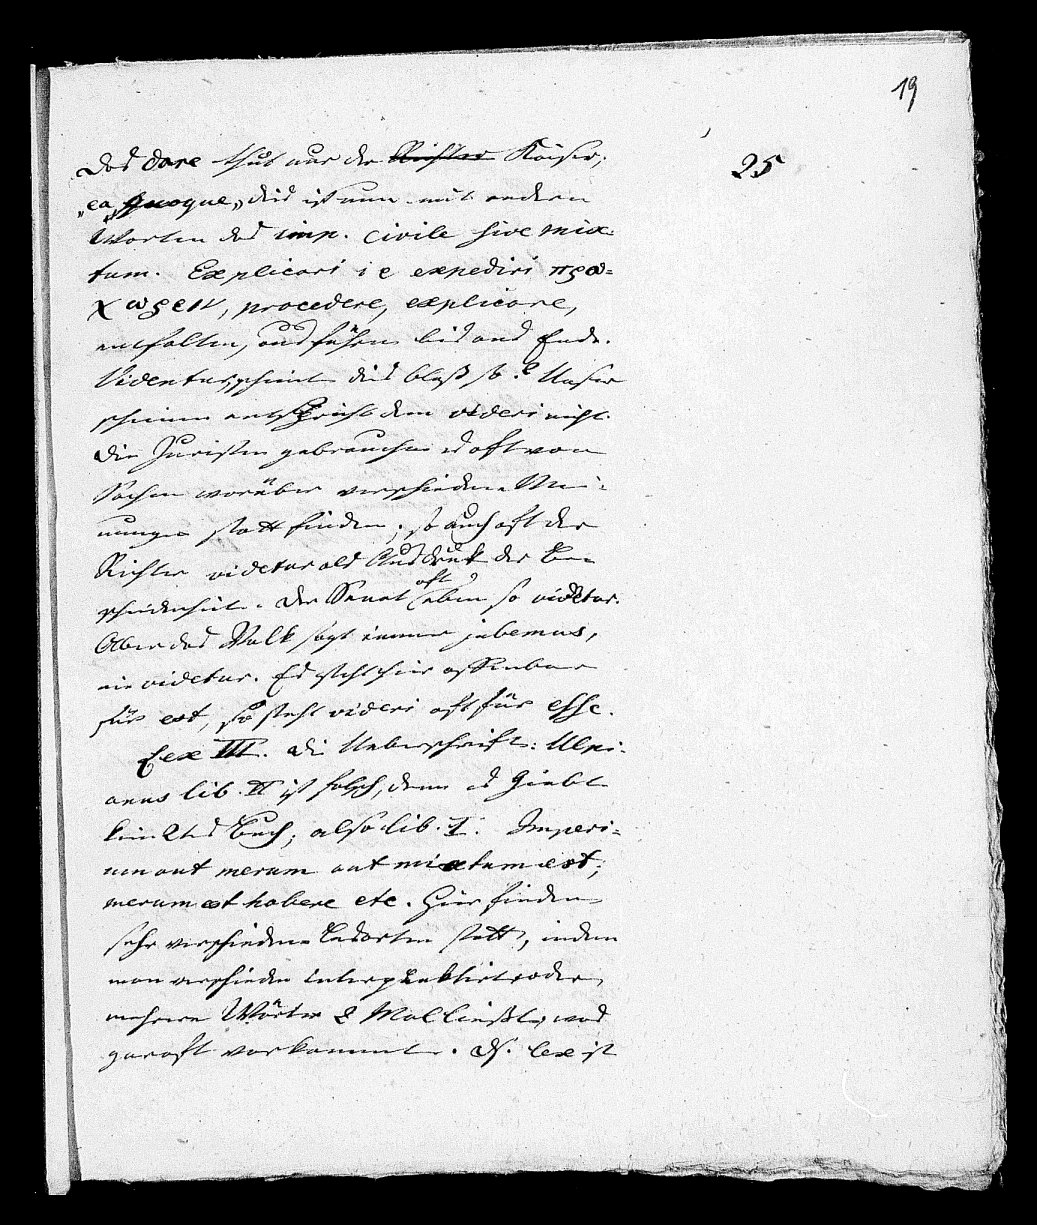 19
25
Das dare thut nur der Richter Kaiser,
„ea quoque„ dies ist nun mit andern
Worten das imp. civile sive mix-
tum. Explicari i e expediri προ-
χωρειν, procedere, explicare,
entfalten, ausführen bis ans Ende.
Videntur, scheint dies bloß so? Unser
scheinen entspricht dem videri nicht.
Die Juristen gebrauchen es oft von
Sachen worüber verschiedene Mei-
nungen statt finden; so auch oft der
Richter videtur als Ausdruck der Be-
scheidenheit. Der Senat oft eben so videtur.
Aber das Volk sagt immer jubemus,
nie videtur. Es steht hier offenbar
für est, so steht videri oft für esse.
Lex III. Die Ueberschrift: Ulpi-
anus lib. II ist falsch, denn es giebt
kein 2tes Buch; also lib. 1. Imperi-
um aut merum aut mixtum est;
merum est habere etc. Hier finden
sehr verschiedene Lesarten statt, indem
man verschieden interpunktirt oder
mehrere Wörter 2 Mal ließt, was
gar oft vorkommt. Ds. lex ist